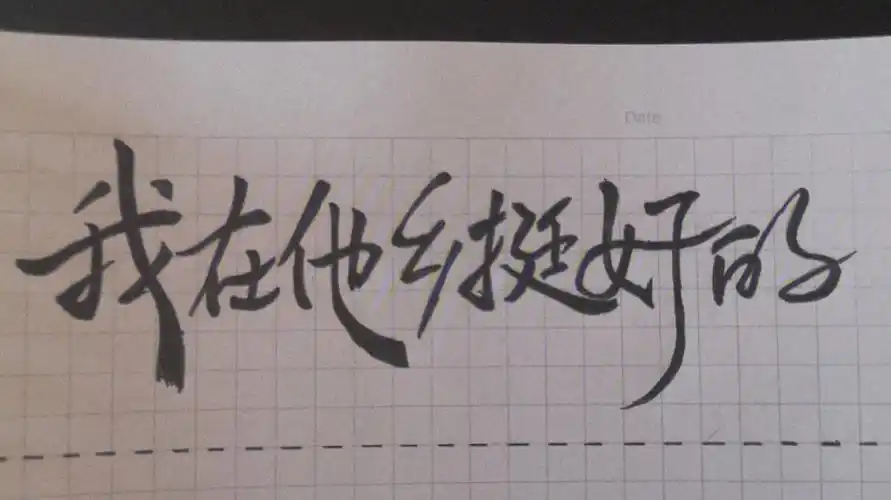 Date
我在他乡挺好的